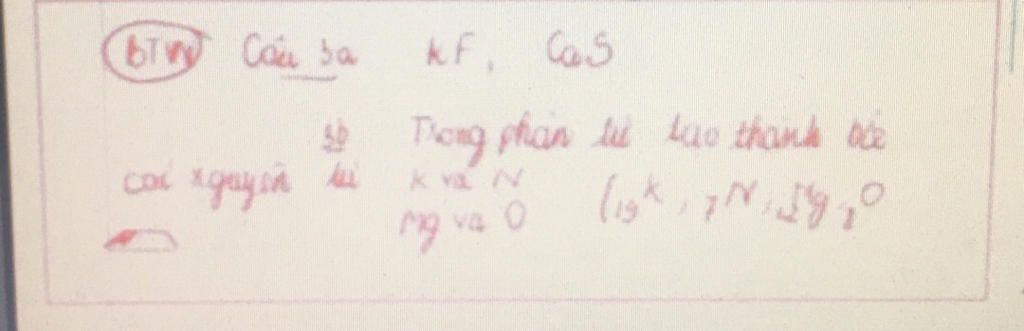 BTVN Câu 3a KF, CaS
3b Trong phân tử tạo thành bởi
các nguyên tử K và N
Mg và O (19K, 7N, Mg, 8O